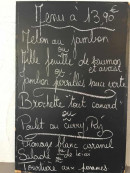 Menu à 13,90€
Melon au jambon
ou
Mille feuille de saumon
et avocat
ou
Jambon persillés sauce verte
Brochette tout canard
ou
Poulet au curry, Riz
Fromage blanc caramel
Salade de
Feuilleté aux pommes